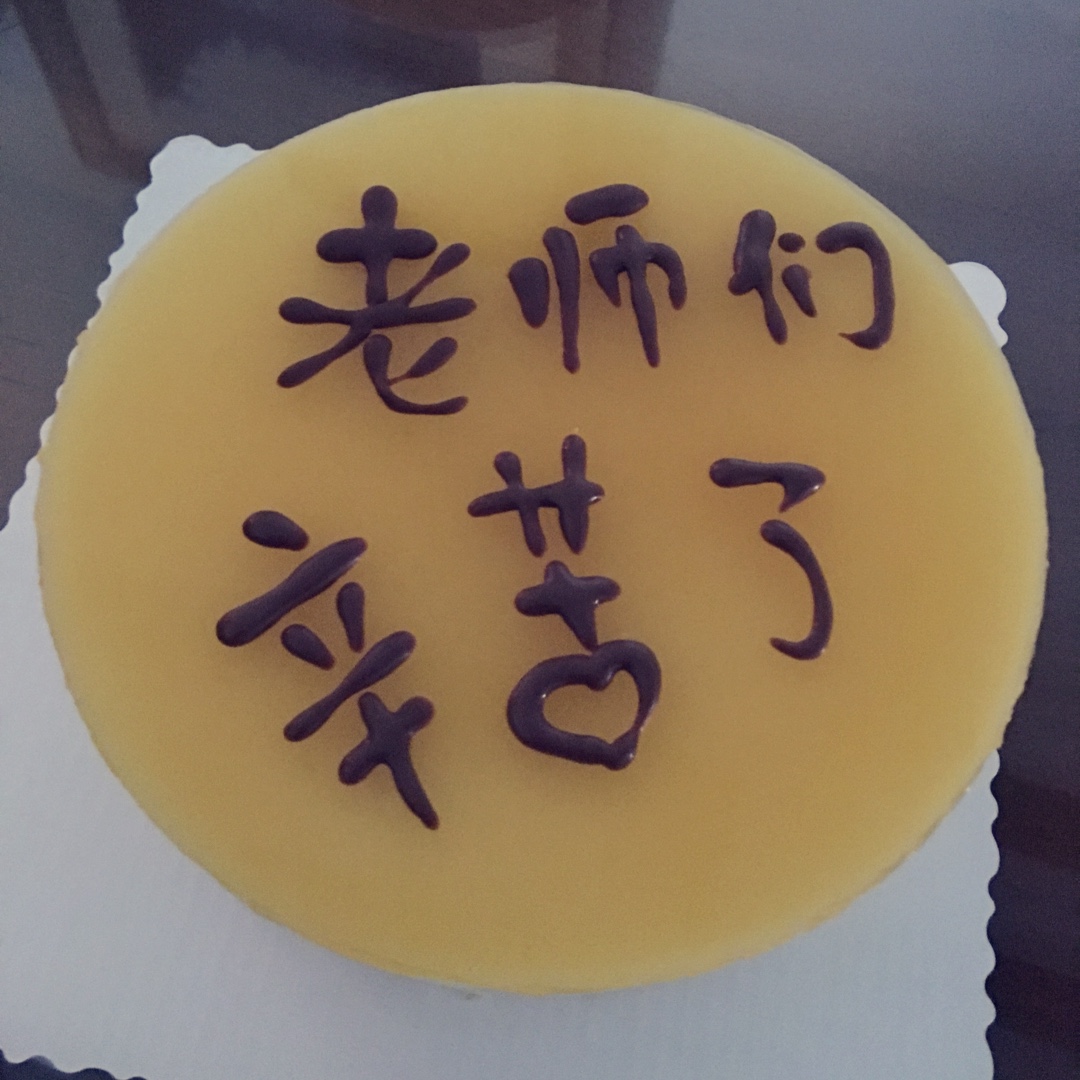 老师们
辛苦了